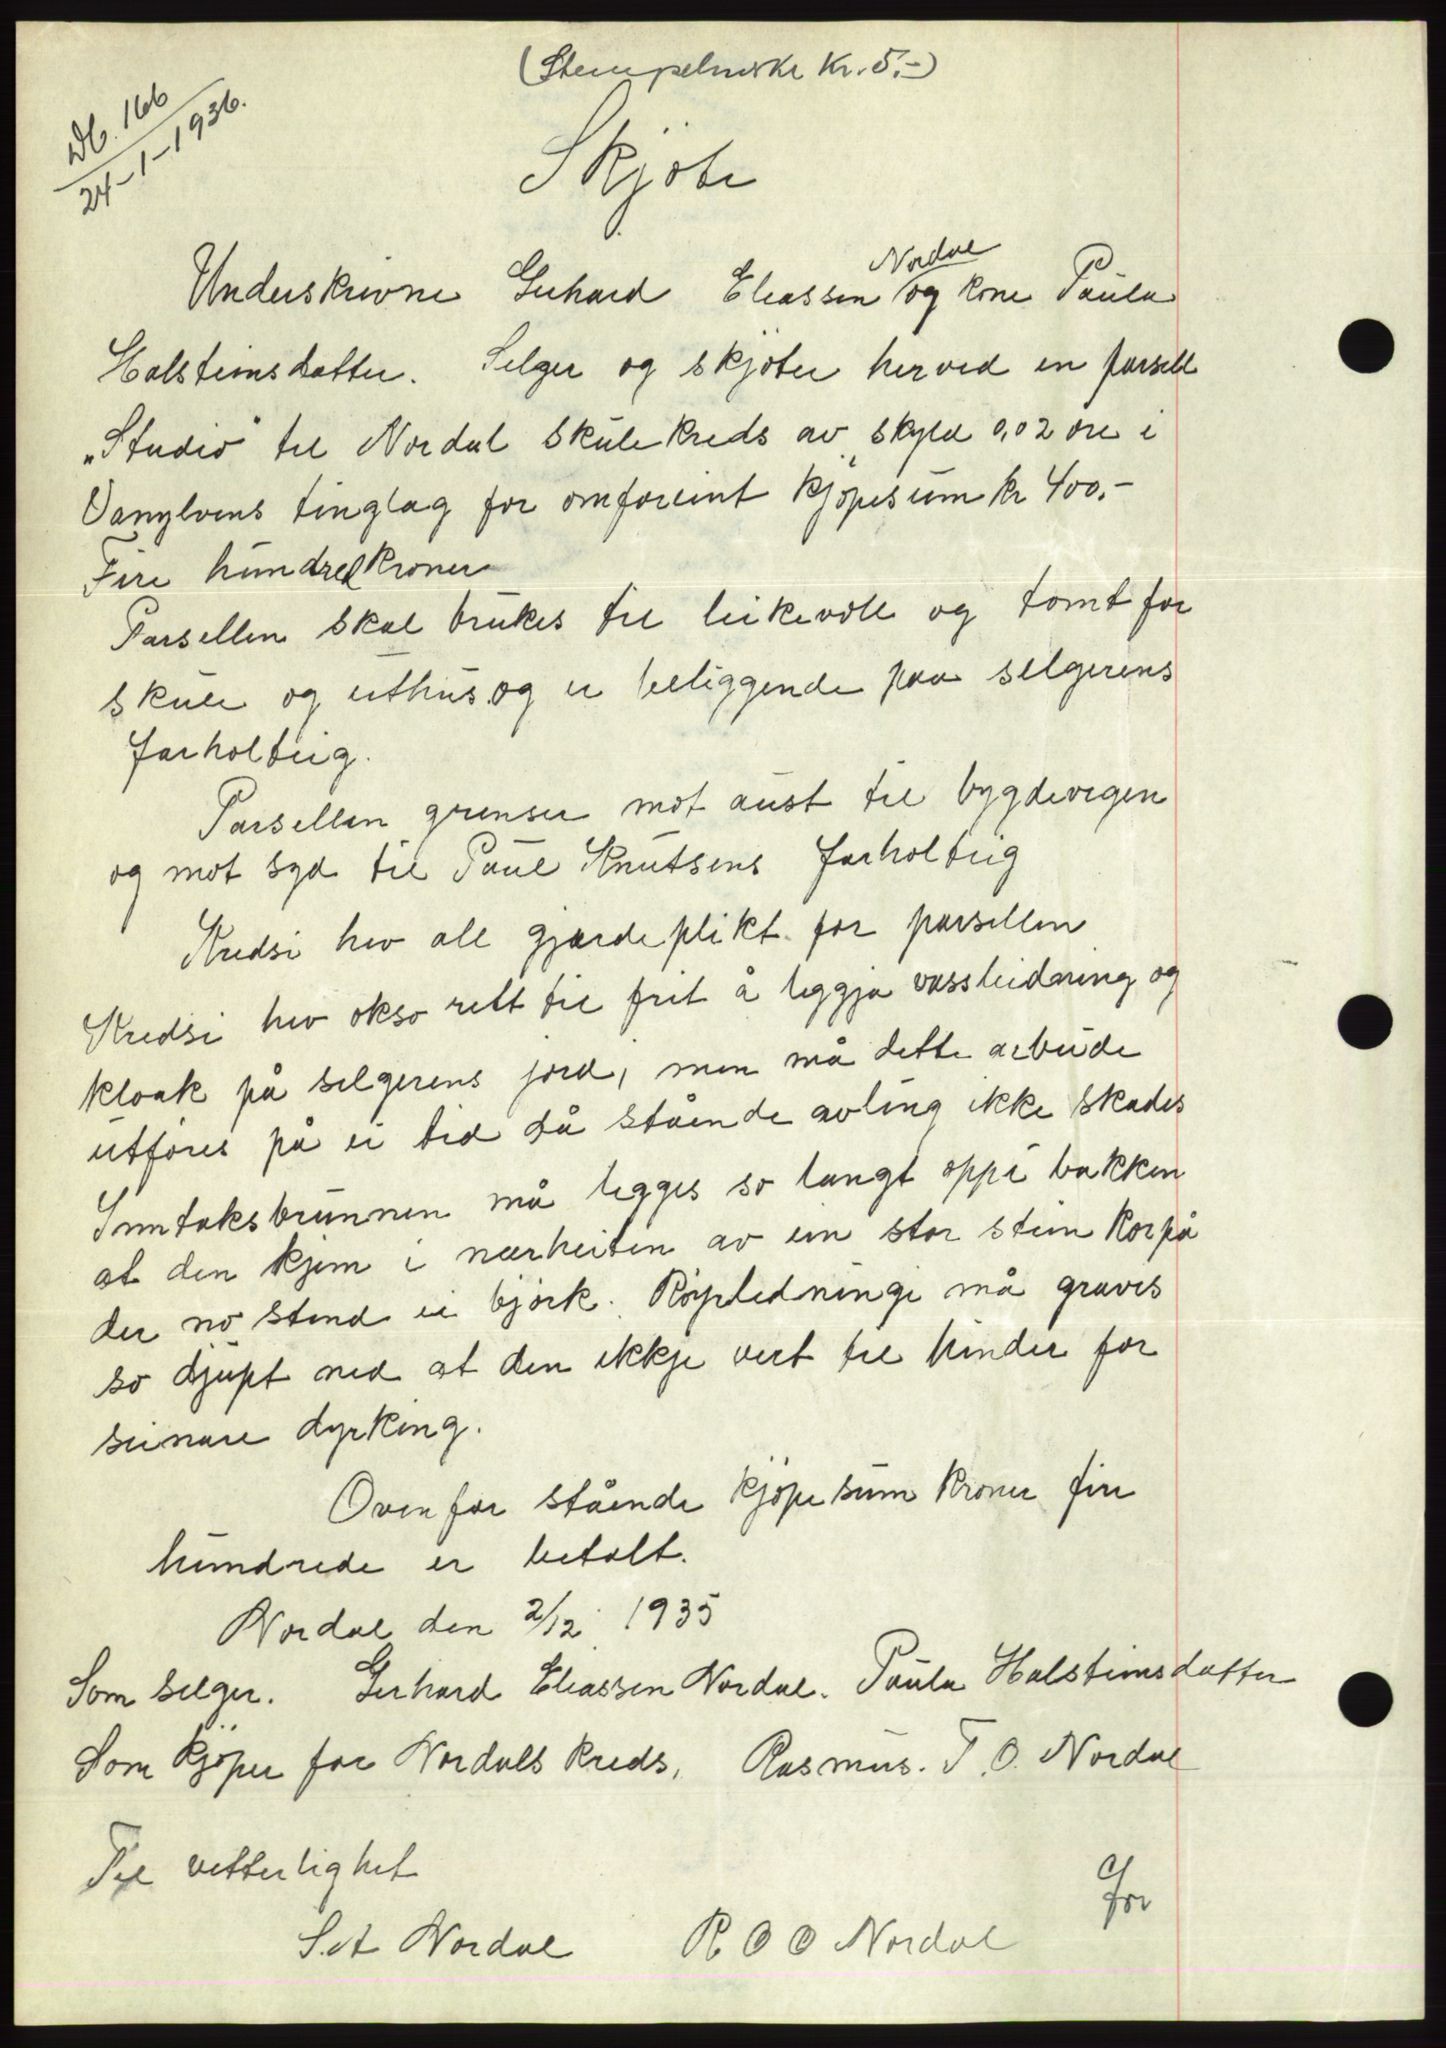 (Stempelmerke kr. 5.-)
Db. 166
24-1-1936.
Skjöte
Nordal
Underskrivne Gerhard Eliassen og kone Paula
Halsteinsdatter. Selger og skjöter herved en parsell
„Studio" til Nordal skule kreds av skyld 0,02 öre i
Vanylvens tinglag for omforeint kjöpesum kr 400.-
Fire hundred kroner
Parsellen skal brukes til leikevoll og tomt for
skule og uthus og er beliggende paa selgerens
farholteig.
Parsellen grenser mot aust til bygdevegen
og mot syd til Paul Knutsens farholteig
Kredsi hev all gjerdeplikt for parsellen
Kredsi hev okso rett til frit å leggja vassleidning og
kloak på selgerens jord, men må dette arbeide
utföres på ei tid då stående avling ikke skades
Inntaksbrunnen må legges so langt oppi bakken
at den kjem i nærheiten av ein stor stein korpå
der no stend ei björk. Röyrledningi må graves
so djupt ned at den ikkje vert til hinder for
seinare dyrking.
Ovenfor stående kjöpesum kroner fire
hundrede er betalt.
Nordal den 2/12 1935
Som selger. Gerhard Eliassen Nordal. Paula Halsteinsdatter
Som kjöper for Nordals kreds, Rasmus. T. O. Nordal
Til vitterlighet
S. A Nordal R O O Nordal
for